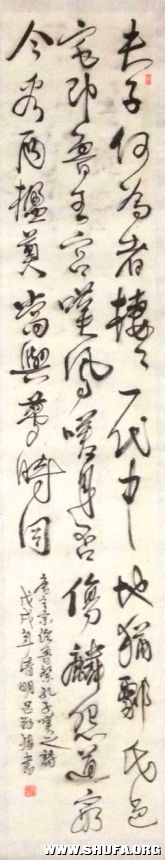 夫子何為者棲々一代中地猶鄹氏邑
宅即魯王宮嘆鳳嗟身否傷麟怨道窮
今看兩楹奠當與夢時同
唐玄宗經魯祭孔子嘆之詩
戊戌年清明呂書
WWW.SHUFA.ORG